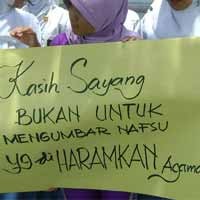 Kasih Sayang
BUKAN UNTUK
MENGUMBAR NAFSU
yg di HARAMKAN Agama